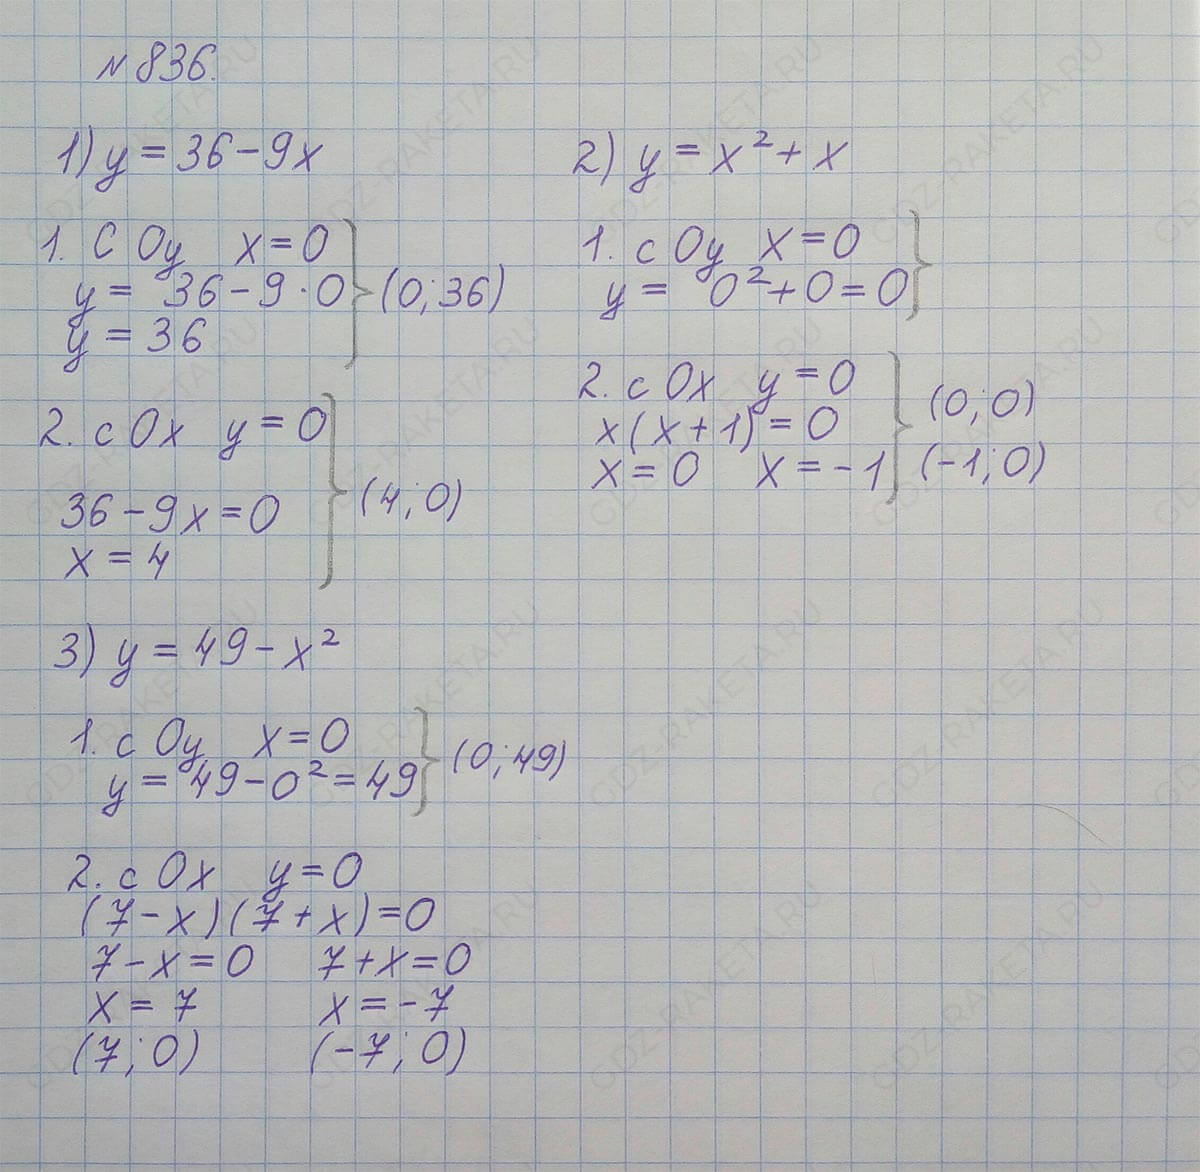 №836.
1) y = 36 - 9x
1. С Oy x = 0
y = 36 - 9 · 0
y = 36
(0; 36)
2. с Ox y = 0
36 - 9x = 0
x = 4
(4; 0)
2) y = x² + x
1. с Oy x = 0
y = 0² + 0 = 0
2. с Ox y = 0
x(x + 1) = 0
x = 0 x = -1
(0; 0)
(-1; 0)
3) y = 49 - x²
1. с Oy x = 0
y = 49 - 0² = 49
(0; 49)
2. с Ox y = 0
(7 - x)(7 + x) = 0
7 - x = 0 7 + x = 0
x = 7 x = -7
(7; 0) (-7; 0)
GDZ-RAKETA.RU